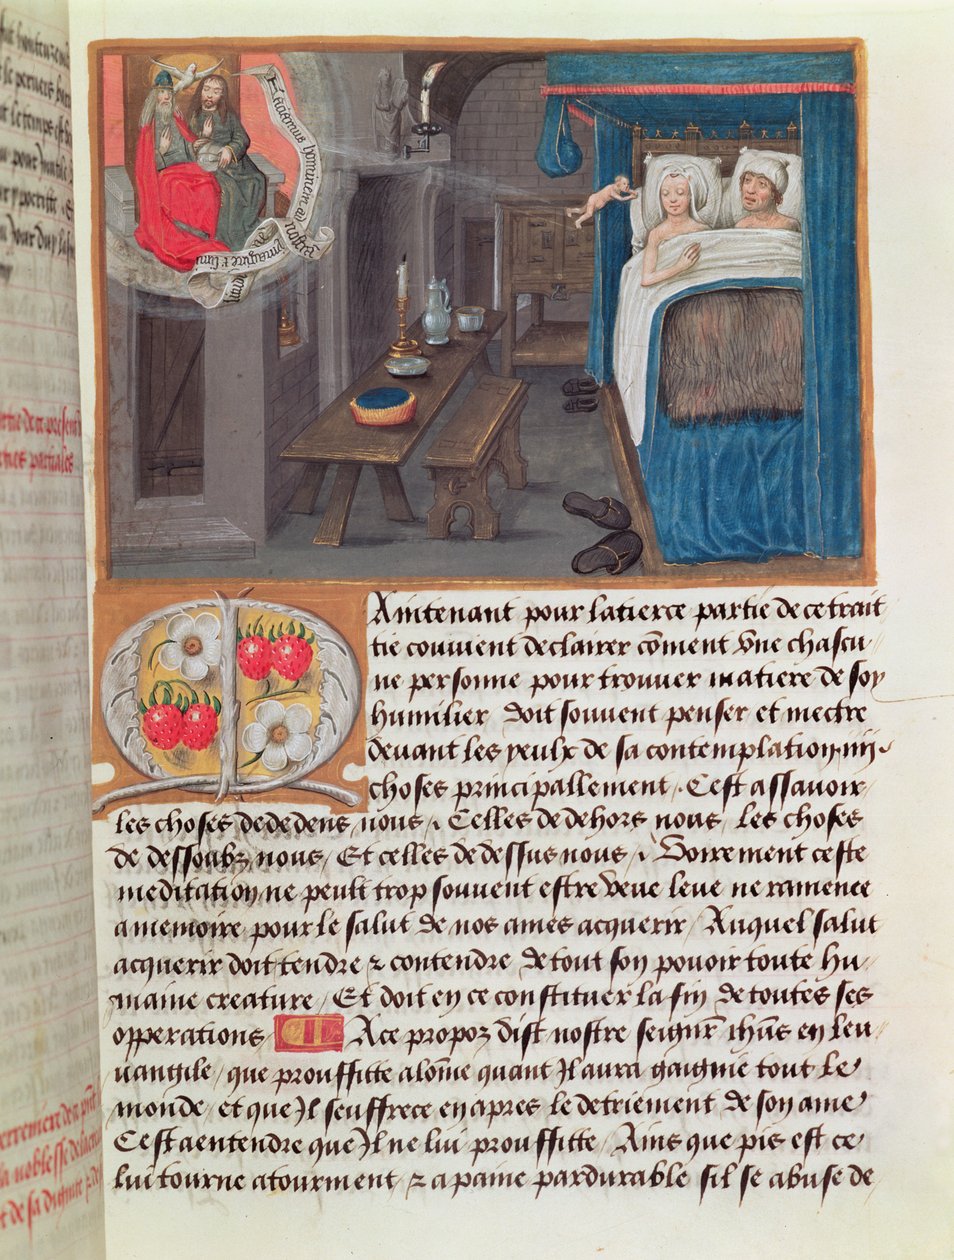 faciamus hominem ad nostra
ymaginem et simi
Maintenant pour la tierce partie de ce trait
tie couvient declairer co͞ment vne chascu
ne personne pour trouver matiere de soy
humilier doit souvent penser et mectre
devant les yeulx de sa contemplation iiij
choses principallement . C'est assavoir
les choses de dedens nous , Celles de dehors nous les choses
de dessoubz nous / Et celles de dessus nous , Voirement ceste
meditation ne peult trop souvent estre veue leue ne ramenee
a memoire pour le salut de nos ames acquerir / Auquel salut
acquerir doit tendre ⁊ contendre de tout son povoir toute hu
maine creature / Et doit en ce constituer la fin de toutes ses
opperations Ace propoz dist nostre seign͞r ih͞us en leu
uangile / que prouffitte a lo͞me quant Il aura gaignie tout le
monde / et que Il seuffrece en apres le detriement de son ame
Cest a entendre que Il ne lui prouffitte / Ains que pis est ce
lui tourne a tourment / ⁊ a paine pardurable sil se abuse de